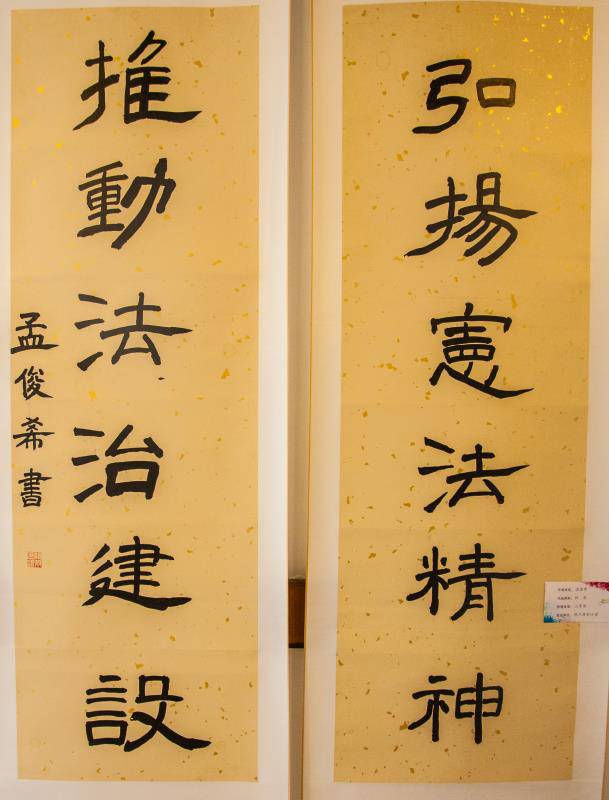 弘揚憲法精神
推動法治建設
孟俊希書